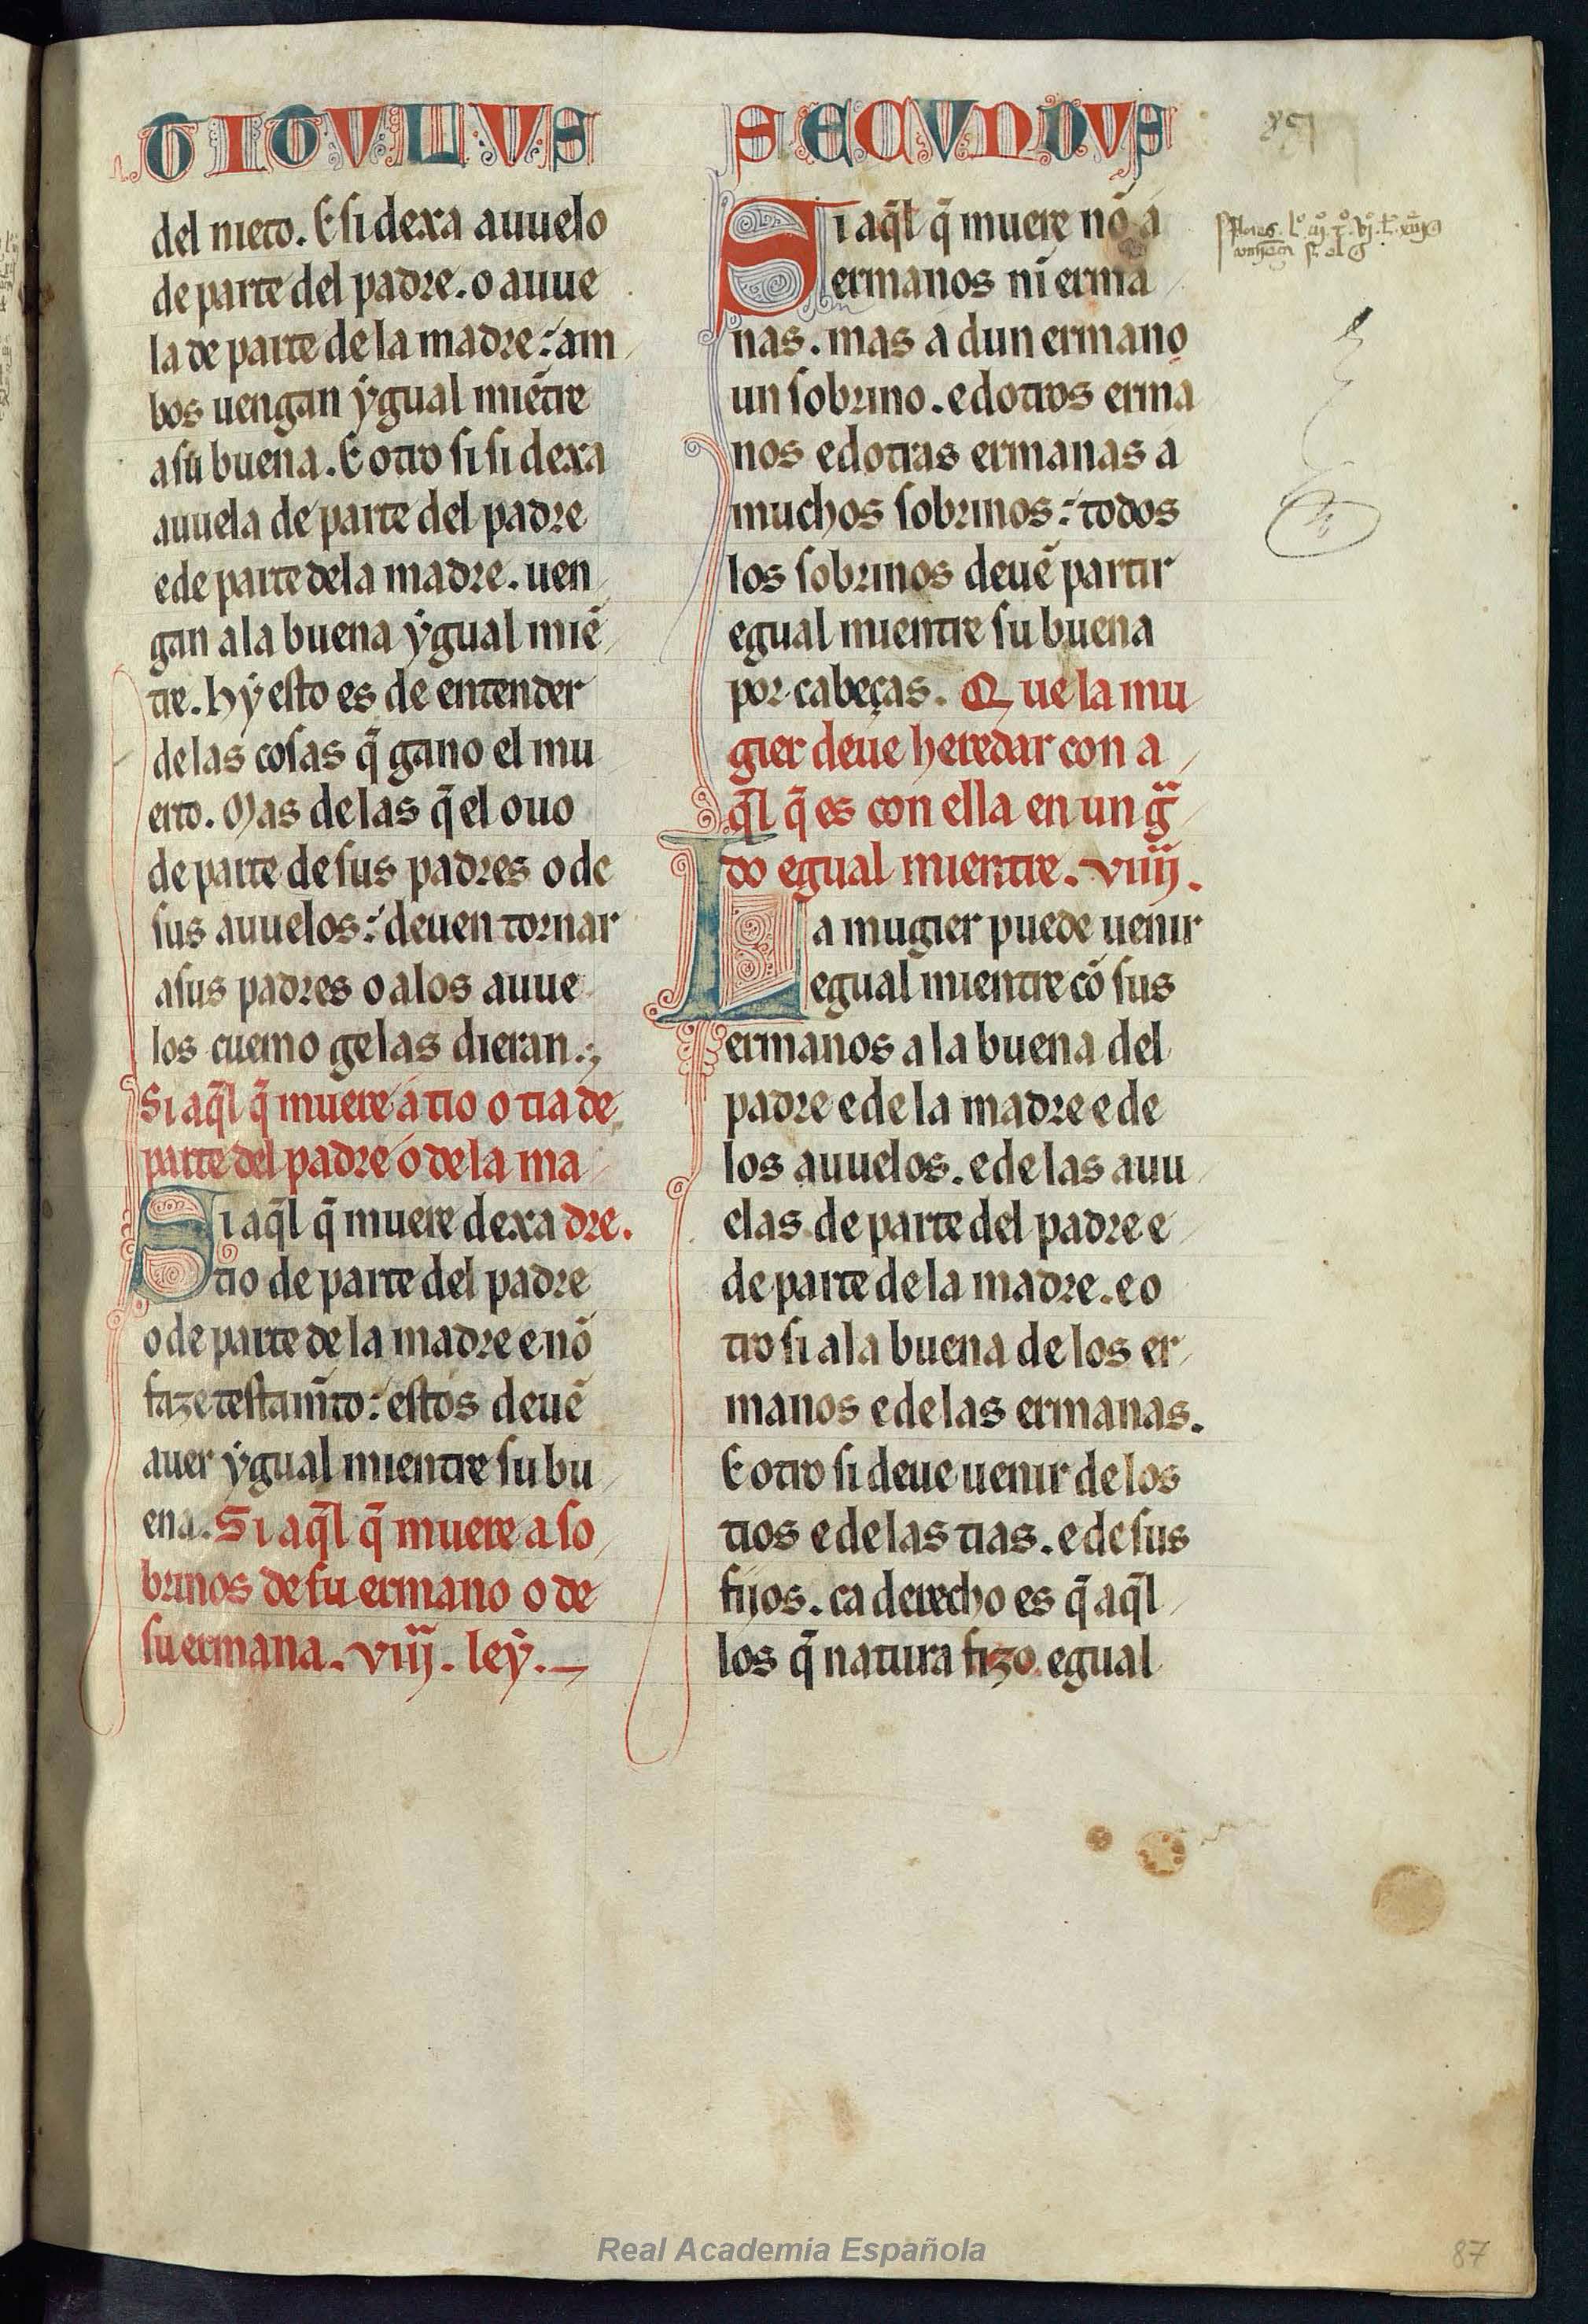 TITULUS SECUNDUS
del nieto. E si dexa auuelo
de parte del padre. o auue
la de parte de la madre: am
bos uengan ẏgual miẽtre
a su buena. E otro si si dexa
auuela de parte del padre
e de parte dela madre. uen
gan ala buena ẏgual miẽ
tre. hẏ esto es de entender
de las cosas q̃ gano el mu
erto. Mas de las q̃ el ouo
de parte de sus padres o de
sus auuelos: deuen tornar
asus padres o alos auue
los cuemo gelas dieran.
Si aq̃l q̃ muere a tio o tia de
parte del padre o de la ma
dre.
Si aq̃l q̃ muere dexa
tio de parte del padre
o de parte de la madre e nõ
faze testam̃to: estos deuẽ
auer ẏgual mientre su bu
ena. Si aq̃l q̃ muere a so
brinos de su ermano o de
su ermana. viii. leẏ.
Si aq̃l q̃ muere nõ a
ermanos ni erma
nas. mas a dun ermano
un sobrino. e dotros erma
nos e dotras ermanas a
muchos sobrinos: todos
los sobrinos deuẽ partir
egual mientre su buena
por cabeças. Que la mu
gier deue heredar con a
q̃l q̃ es con ella en un gͣ
do egual mientre. viiii.
La mugier puede uenir
egual mientre cõ sus
ermanos a la buena del
padre e de la madre e de
los auuelos. e de las auu
elas de parte del padre e
de parte de la madre. e o
tro si a la buena de los er
manos e de las ermanas.
E otro si deue uenir de los
tios e de las tias. e de sus
fijos. ca derecho es q̃ aq̃l
los q̃ natura fizo egual
Real Academia Española
87